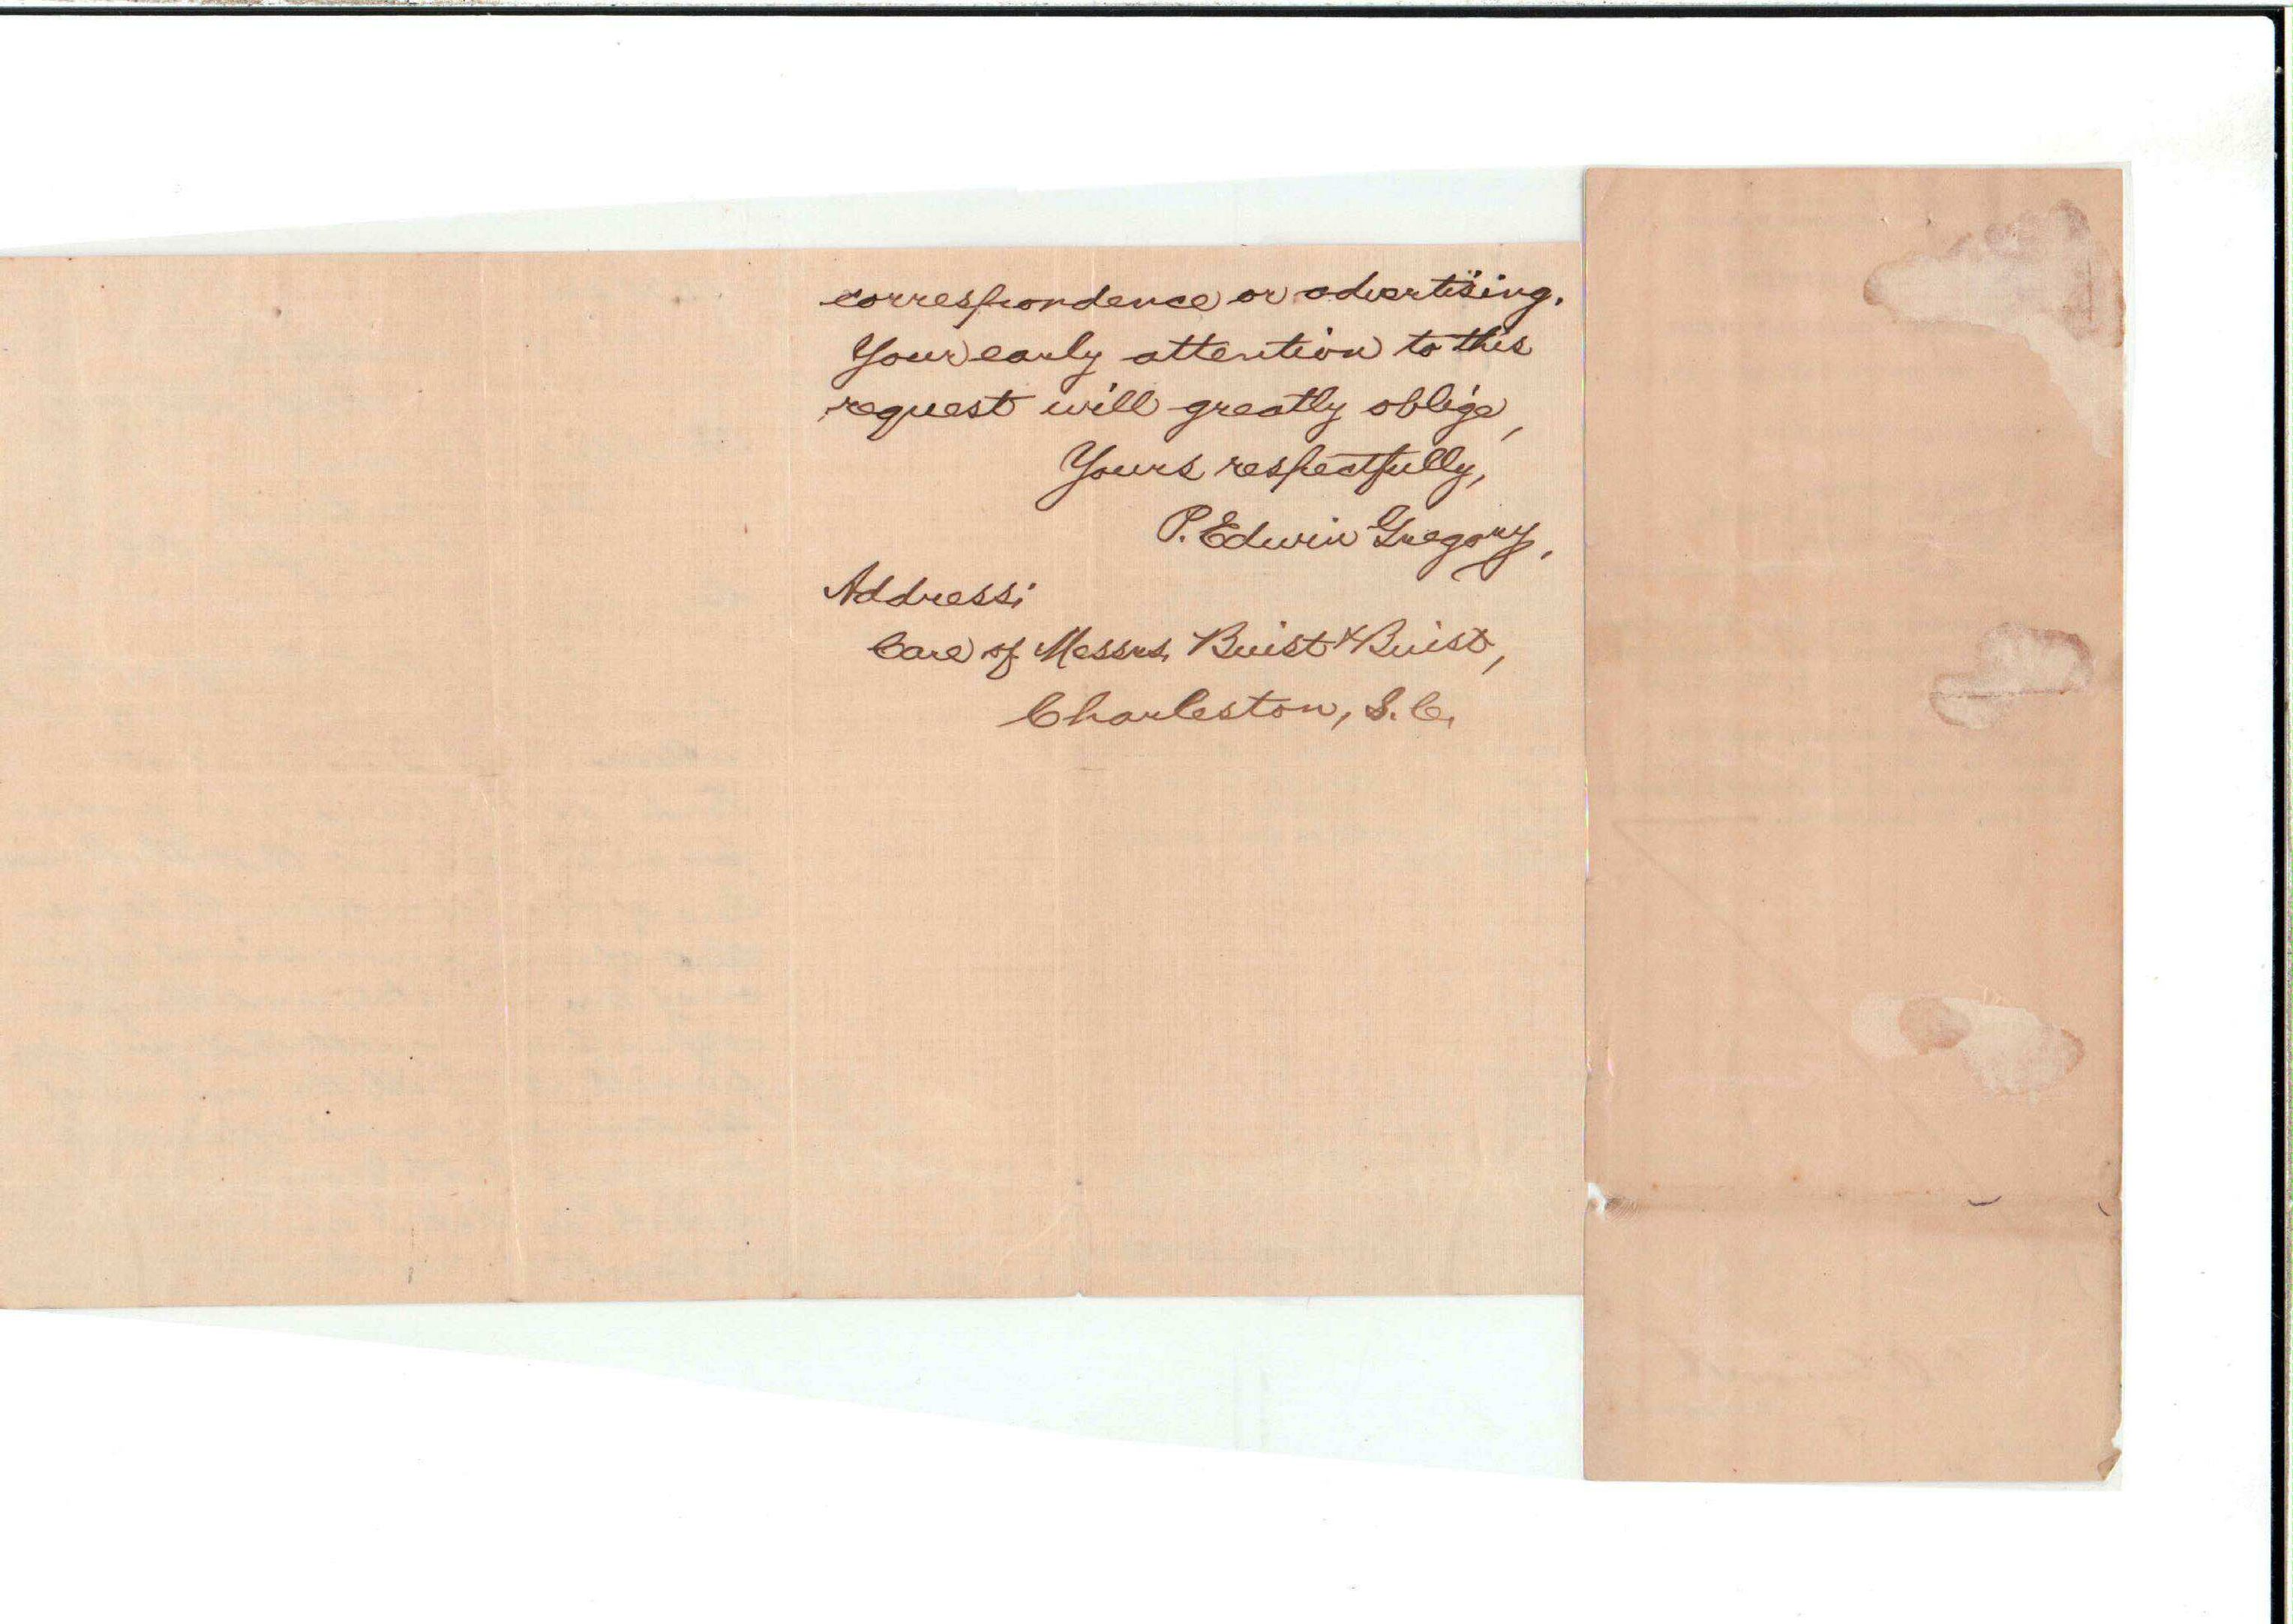 correspondence or advertising.
Your early attention to this
request will greatly oblige,
Yours respectfully,
P. Edwin Gregory.
Address:
Care of Messrs. Buist & Buist,
Charleston, S.C.